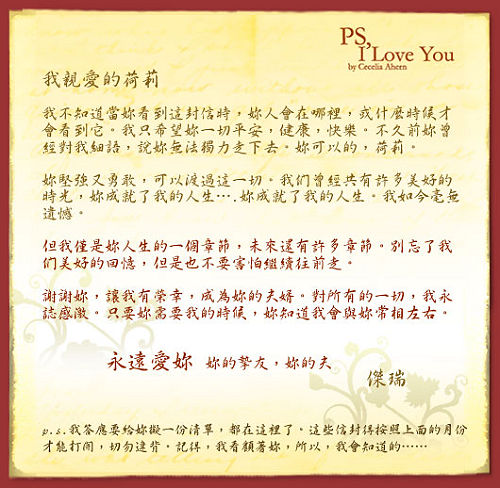 PS,
I Love You
by Cecelia Ahern
我親愛的荷莉
我不知道當妳看到這封信時，妳人會在哪裡，或什麼時候才
會看到它。我只希望妳一切平安，健康，快樂。不久前妳曾
經對我細語，說妳無法獨力走下去。妳可以的，荷莉。
妳堅強又勇敢，可以渡過這一切。我們曾經共有許多美好的
時光，妳成就了我的人生‥‥妳成就了我的人生。我如今毫無
遺憾。
但我僅是妳人生的一個章節，未來還有許多章節。別忘了我
們美好的回憶，但是也不要害怕繼續往前走。
謝謝妳，讓我有榮幸，成為妳的夫婿。對所有的一切，我永
誌感激。只要妳需要我的時候，妳知道我會與妳常相左右。
永遠愛妳 妳的摯友，妳的夫
傑瑞
p.s.我答應要給妳擬一份清單，都在這裡了。這些信封得按照上面的月份
才能打開，切勿違背。記得，我看顧著妳，所以，我會知道的⋯⋯